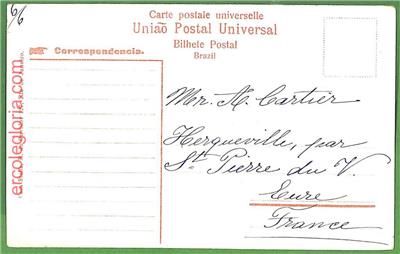 6/6
Carte postale universelle
União Postal Universal
Bilhete Postal
Brazil
Correspondencia.
ercolegloria.com
Mr. A. Cartier
Herqueville, par
St. Pierre du V.
Eure
France